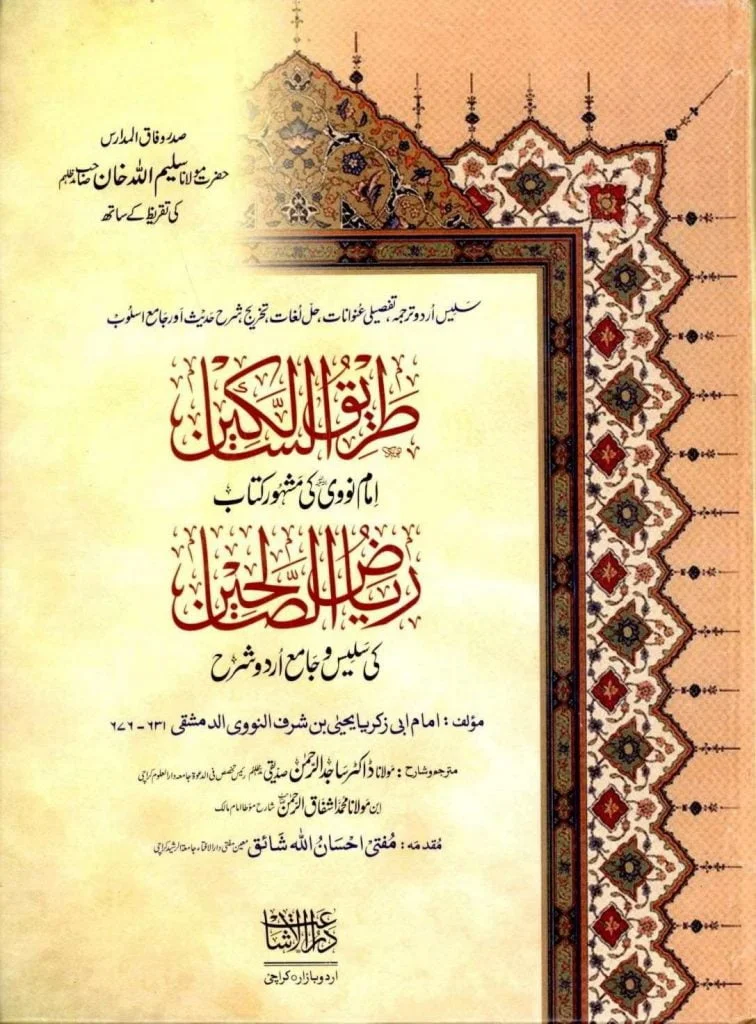 صدر وفاق المدارس
حضرت مولانا سلیم اللہ خان صاحب مدظلہم
کی تقریظ کے ساتھ
سلیس اُردو ترجمہ، تفصیلی عنوانات، حل لغات، تخریج، شرح حدیث اور جامع اسلوب
طریق السالکین
امام نووی کی مشہور کتاب
ریاض الصالحین
کی سلیس و جامع اُردو شرح
مؤلف: امام ابی زکریا یحییٰ بن شرف النووی الدمشقی ۶۳۱ - ۶۷۶
مترجم و شارح: مولانا ڈاکٹر ساجد الرحمٰن صدیقی مدظلہم رئیس تخصص فی الدعوۃ جامعہ دار العلوم کراچی
ابن مولانا محمد اشفاق الرحمٰن شارح مؤطا امام مالک
مقدمہ: مُفتی احسانُ اللہ شائق معین مفتی دار الافتاء جامعۃ الرشید کراچی
دار الاشاعت
اردو بازار، کراچی